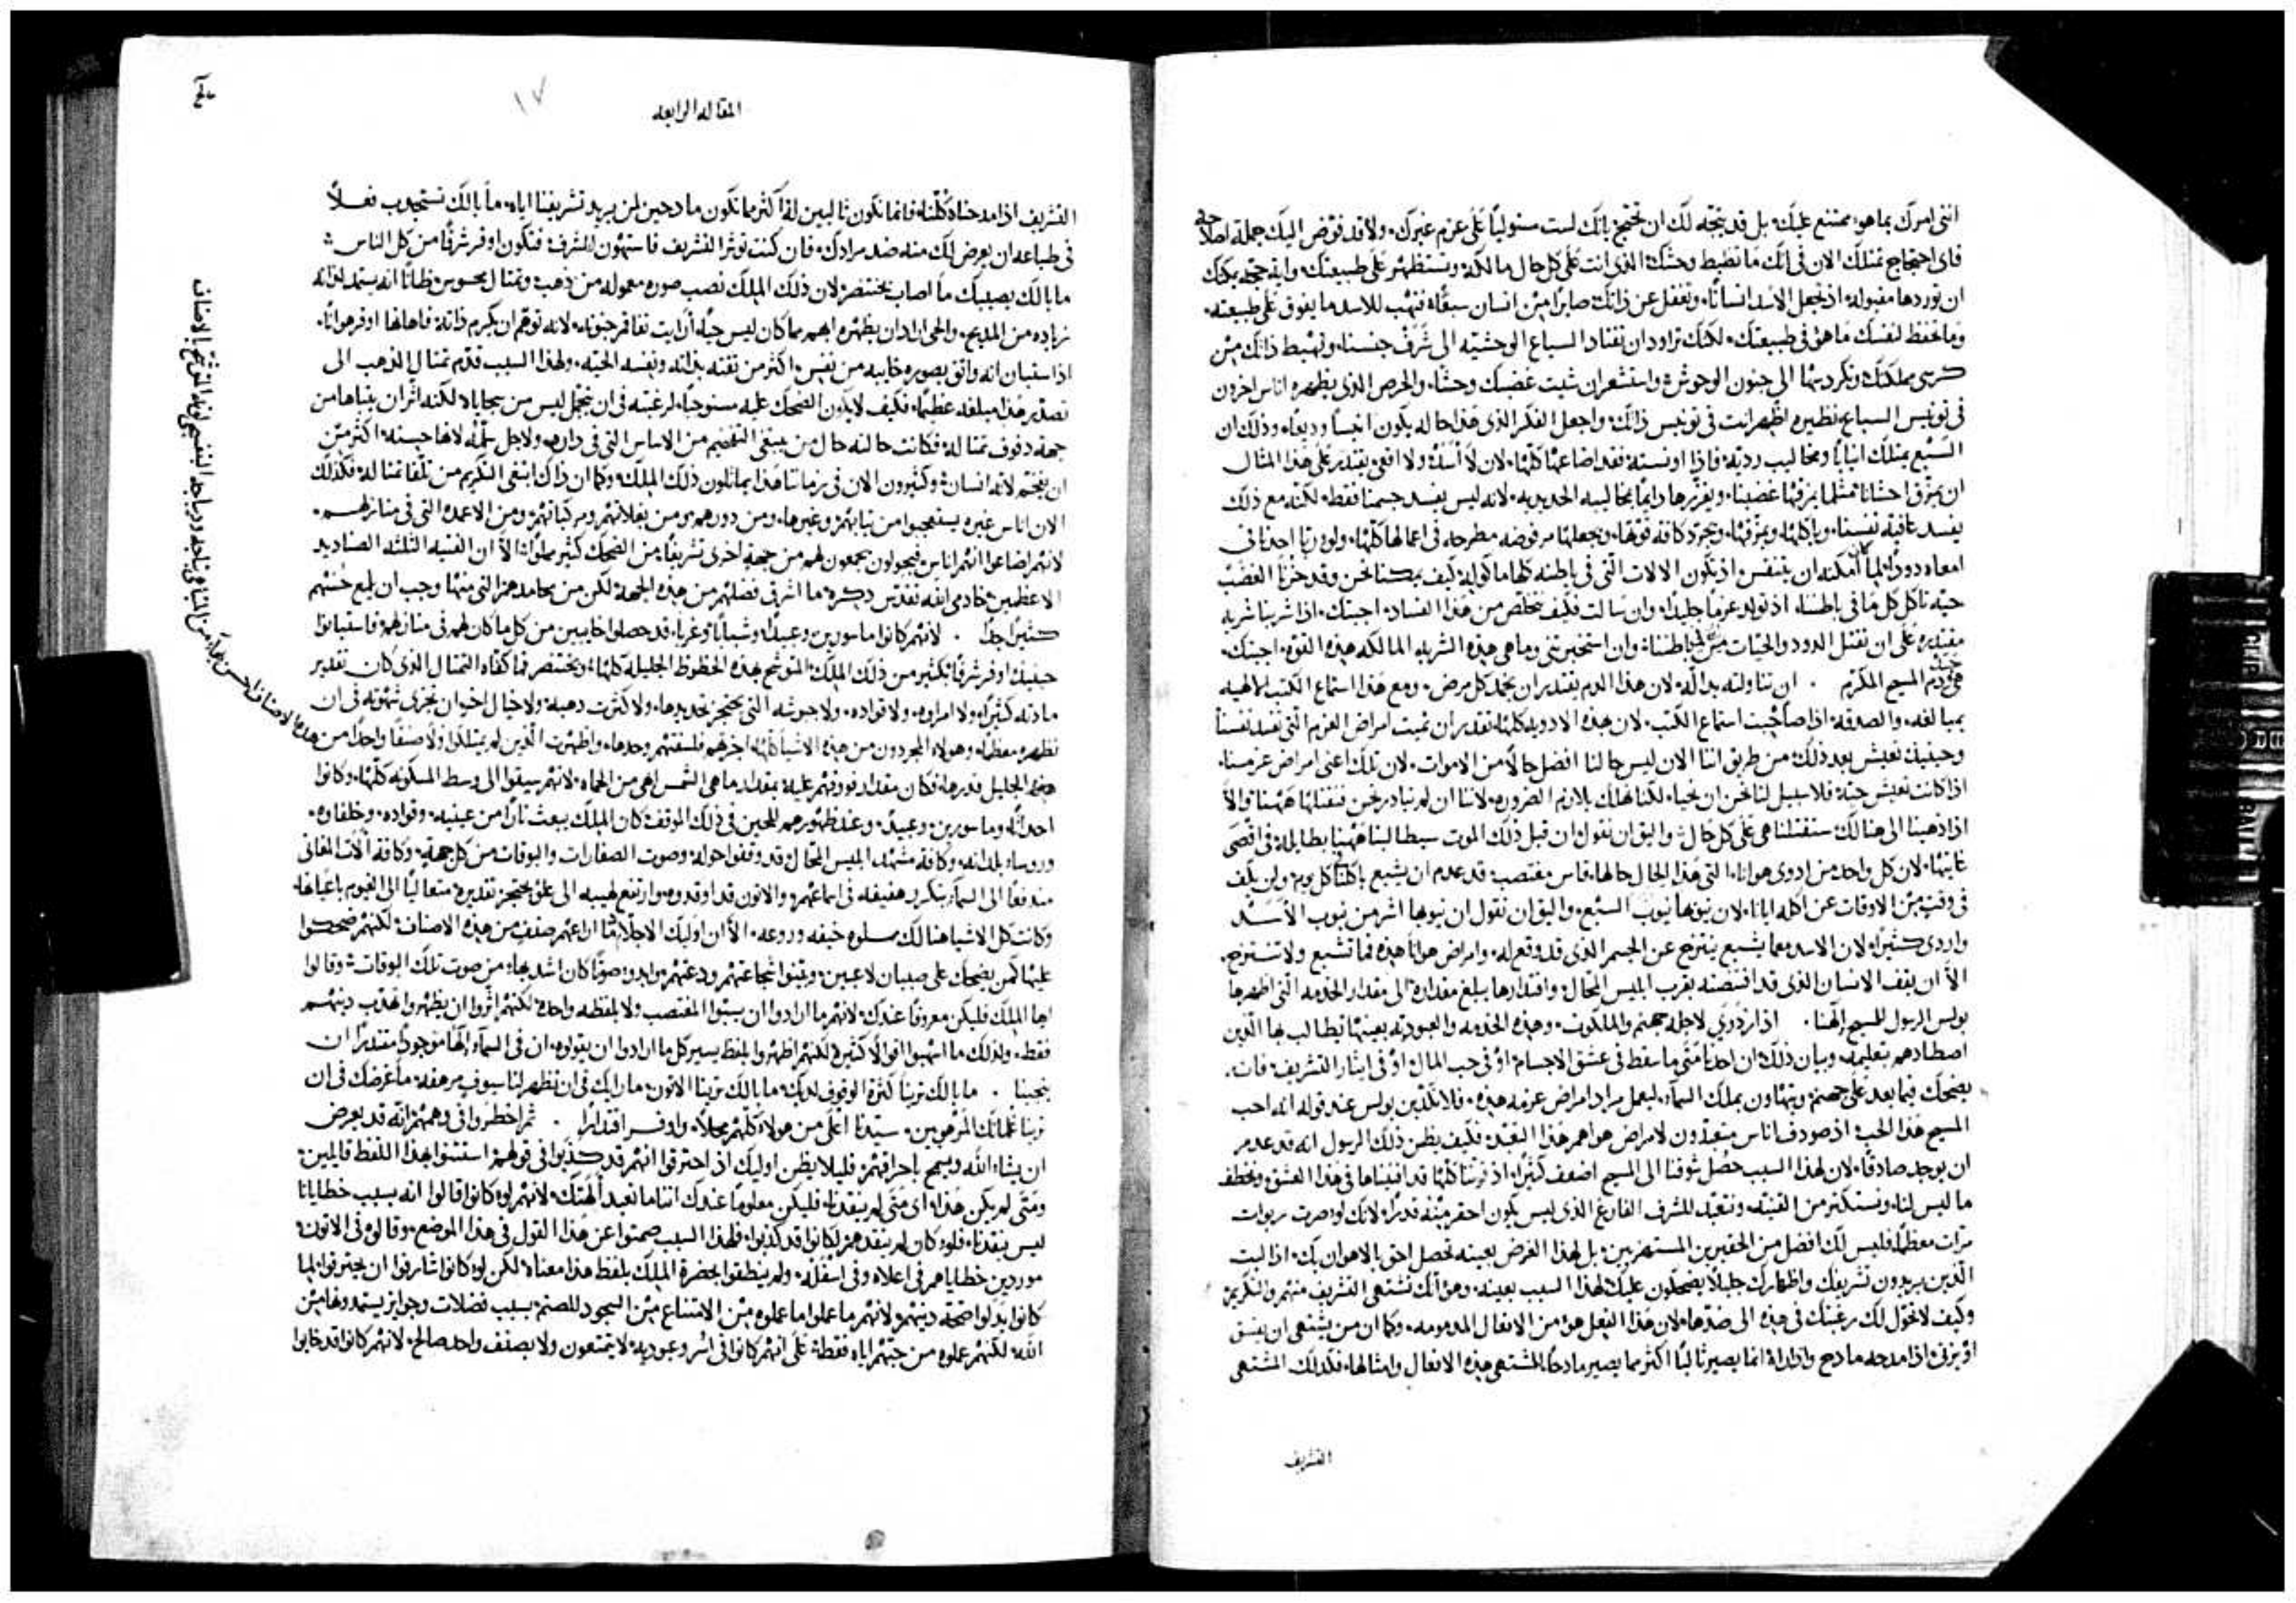 انني امرك بما هو ممتنع عليك، بل قد يتجه لك ان تحتج بانك لست مستوليًا على عزم غيرك، ولا قد فوض اليك جملة اصلاحه
فاي احتجاج تمتلك الان في انك ما تضبط وحشك الذي انت على كل حال مالكه وتستظهر على طبيعتك، واية حجه يمكنك
ان توردها مقبوله اذ تجعل الاسد انسانًا، وتغفل عن ذاتك صايرًا من انسان سبعًا، فتهب للاسد ما يفوق على طبيعته،
وما تحفظ لنفسك ما هو في طبيعتك، لكنك تراود ان تقتاد السباع الوحشيه الى شرف جنسنا، وتهبط ذاتك من
كرسي مملكتك وتكردسها الى جنون الوحوش، واستشعر ان شيت غضبك وحشًا، والحرص الذي يظهره اناس اخرون
في تونيس السباع نظيره اظهر انت في تونيس ذاتك، واجعل الفكر الذي هذا حاله يكون انيسًا وديعًا، وذلك ان
السبع يمتلك انيابًا ومخاليب رديه، فاذا اونسته فقد اضاعها كلها، لان لا اسد ولا افعى يقتدر على هذا المثال
ان يمزق احشانا مثلما يمزقها غضبنا، ويغزرها دايمًا بمخاليبه الحديديه، لانه ليس يفسد جسمنا فقط، لكنه مع ذلك
يفسد عافية نفسنا، وياكلها ويمزقها، ويجرد كافة قوتها، ويجعلها مرفوضه مطرحه في اعمالها كلها، ولو ربا احدنا في
امعاه دودًا لما كان امكنه ان يتنفس، اذ تكون الالات التي في باطنه كلها ماكوله، كيف يمكنا نحن وقد حزنا الغضب
حيه تاكل كل ما في باطننا، اذ تولد عزمًا جليدًا، وان سالت فكيف نتخلص من هذا الفساد، اجبتك، اذا شربنا شربه
مقتدره على ان تقتل الدود والحيات من باطننا، وان استخبرتني وما هي هذه الشربه المالكه هذه القوه، اجبتك،
هي دم المسيح المكرم . ان تناولته بدالة، لان هذا الدم يقتدر ان يخمد كل مرض، ومع هذا استماع الكتب الالهيه
بمبالغه، والصدقه اذا صاحبت استماع الكتب، لان هذه الادويه كلها تقدر ان تميت امراض العزم التي تفسد نفسنا
وحينيذ نعيش بعد ذلك، من طريق اننا الان ليس حالنا افضل حالًا من الاموات، لان تلك اعني امراض عزمنا،
اذا كانت تعيش حيه، فلا سبيل لنا نحن ان نحيا، لكنا نهلك بلازم الضروره، لاننا ان لم نبادر نحن فنقتلها ههنا والا
اذا ذهبنا الى هنالك ستقتلنا هي على كل حال، واليق ان نقول ان قبل ذلك الموت سيطالبنا ههنا بطايله في اقصى
غايتها، لان كل واحد من ادوى هوانا، التي هذا الحال حالها، قاس مغتصب قد عدم ان يشبع ياكلنا كل يوم، ولن يكف
في وقت من الاوقات عن اكله ايانا، لان نيوبها نيوب السبع، واليق ان نقول ان نيوبها اشر من نيوب الاسد
واردى كثيرًا، لان الاسد معما يشبع ينتزح عن الجسم الذي قد وقع له، وامراض هوانا هذه فما تشبع ولا تنتزح،
الا ان يقف الانسان الذي قد اقتنصته بقرب ابليس المحال، واقتدارها يبلغ مقداره، الى مقدار الخدمه التي اظهرها
بولس الرسول للمسيح الهنا . اذ ازدرى لاجله جهنم والملكوت، وهذه الخدمه والعبوديه بعينها تطالب بها الذين
اصطادهم بتعليمه، وبيان ذلك، ان احدنا متى ما سقط في عشق الاجسام، او في حب المال، او في ايثار التشريف، فات،
يضحك فيما بعد على جهنم، ويتهاون بملك السماء، ليعمل مراد امراض عزمه هذه، فلا نكذبن بولس عند قوله انه احب
المسيح هذا الحب، اذ صودف اناس متعبدون لامراض هواهم هذا التعبد، فكيف يظن ذلك الرسول انه قد عدم
ان يوجد صادقًا، لان لهذا السبب حصل شوقنا الى المسيح اضعف كثيرًا، اذ قوتنا كلها قد افنيناها في هذا العشق، ونخطف
ما ليس لنا، ونستكثر من القنيه، ونتعبد للشرف الفارغ الذي ليس يكون احقر منه قدرًا، لانك لو صرت ربوات
مرات معظمًا، فليس لك افضل من الحقيرين المستهزين، بل لهذا الغرض بعينه تحصل احق بالاهوان بك، اذ البت
الذين يريدون تشريفك واظهارك جليلًا، يضحكون عليك لهذا السبب بعينه، وهو انك تشتهي التشريف منهم والتكريم،
وكيف لا تتحول لك رغبتك في هذه الى ضدها، لان هذا الفعل هو من الافعال المذمومه، وكما ان من يشتهي ان يفسق
او يزني، اذا مدحه مادح واداراه، انما يصير ثالبًا اكثر مما يصير مادحًا المشتهي هذه الافعال وامثالها، فكذلك المشتهي
التشريف
المقاله الرابعه
١٧
التشريف اذا مدحناه كلنا، فانما نكون ثالبين له، اكثر مما نكون مادحين لمن يريد تشريفنا اياه، ما بالك تستجذب فعلًا
في طباعه ان يعرض لك منه ضد مرادك، فان كنت توثر التشريف فاستهون بالشرف، فتكون اوفر شرفًا من كل الناس،
ما بالك يصيبك ما اصاب بختنصر، لان ذلك الملك نصب صوره معموله من ذهب، وتمثال محسوس، ظانًا انه يستمد لذاته
زياده من المديح، والحي اراد ان يظهره ابهى مما كان ليس حيًا، ارايت تفاقم جنونه، لانه توهم ان يكرم ذاته، فاهانها اوفر هوانًا،
اذ استبان انه واثق بصوره خايبه من نفس اكثر من ثقته بذاته وبنفسه الحيه، ولهذا السبب قدم تمثال الذهب الى
تصدير هذا مبلغه عظيمًا، فكيف لا يكون الضحك عليه مستوجبًا، لرغبته في ان يتجمل ليس من سجاياه، لكنه اثر ان يتباها من
جهة دفوف تمثاله، فكانت حالته حال من يبتغي التفخيم من الاساس التي في داره، ولاجل سلمه، لانها حسنه اكثر من
ان يفتخم لانه انسان، وكثيرون الان في زماننا هذا يماثلون ذلك الملك، وكما ان ذاك ابتغى التكريم من تلقا تمثاله، فكذلك
الان اناس غيره يستعجبوا من ثيابهم وغيرها، ومن دورهم، ومن بغلاتهم ومركباتهم، ومن الاعمده التي في منازلهم،
لانهم اضاعوا انهم اناس، فيجولون يجمعون لهم من جهة اخرى تشريفًا، من الضحك كثير مملوًا، الا ان الفتيه الثلثه الصناديد
الاعظمين خادمي الله تقدس ذكره، ما اشرق فضلهم من هذه الجهه، لكن من محامدهم التي منها وجب ان يلمع حسنهم
كثيرًا جدًا . لانهم كانوا ماسورين وعبيدًا، وشبابًا وغربا، قد حصلوا خايبين من كل ما كان لهم في منازلهم، فاستبانوا
حينيذ اوفر شرفًا بكثير من ذلك الملك، المتوشح بهذه الحظوظ الجليله كلها، وبختنصر فما كفاه التمثال الذي كان تقدير
مادته كثيرًا، ولا امراوه، ولا قواده، ولا جيوشه التي يحتجز تحديدها، ولا كثرت ذهبه، ولا خيال اخر ان تجزى شهوته في ان
تظهره معظمًا، وهولاء المجردون من هذه الاشيا كلها، اجزتهم فلسفتهم وحدها، واظهرت الذين لم يمتلكوا ولا صنفًا واحدًا من
هذا الجليل قدرها، فكان مقدار فوقهم عليه، بمقدار ما هي الشمس ابهى من الحماه، لانهم سيقوا الى وسط المسكونه كلها، وكانوا
احداثًا، وماسورين، وعبيدًا، وعند ظهورهم للحين في ذلك الموقف، كان الملك يبعث نارًا من عينيه، وقواده، وخلفاوه،
وروساء بلدانه، وكافة مشهد ابليس المحال قد وقفوا حوله، وصوت الصفارات والبوقات من كل جهة، وكافة الات المغاني
مندفعًا الى السماء يتكرر هفيفه في اسماعهم، والاتون قد اوقدوه، وارتفع لهيبه الى علو يحتجز تقديره، متعاليًا الى الغيوم باعيانها،
وكانت كل الاشيا هنالك مملوه خيفه وروعه، الا ان اوليك الاجلا، ما اراعهم صنف من هذه الاصناف، لكنهم ضحكوا
عليها كمن يضحك على صبيان لاعبين، وبثوا شجاعتهم ودعتهم، وابدوا صوتًا كان اشد بها، من صوت تلك البوقات، وقالوا
ايها الملك فليكن معروفًا عندك، لانهم ما ارادوا ان يسبوا المغتصب ولا بلفظه واحده، لكنهم اثروا ان يظهروا تهذب دينهم
فقط، ولذلك ما اسهبوا اقوالًا كثيره، لكنهم اظهروا بلفظ يسير كل ما ارادوا ان يقولوه، ان في السماء الهًا موجودًا مقتدرًا ان
ينجينا . ما بالك ترينا كثرة الوقوف لديك، ما بالك ترينا الاتون، ما رايك في ان تظهر لنا سيوف مرهفه، ما غرضك في ان
ترينا غلمانك المرهوبين، سيدنا اعلى من هولاء كلهم محلًا، واوفر اقتدارًا . ثم اخطروا في وهمهم انه قد يعرض
ان يشاء الله ويسمح باحراقهم، فليلا يظن اوليك اذ احترقوا انهم قد كذبوا في قولهم، استثنوا بهذا اللفظ قايلين،
ومتى لم يكن هذا، اي متى لم ينقذنا، فليكن معلومًا عندك اننا ما نعبد الهتك، لانهم لو كانوا قالوا انه بسبب خطايانا
ليس ينقذنا، فلو كان لم ينقذهم لكانوا قد كذبوا، فلهذا السبب صمتوا عن هذا القول في هذا الموضع، وقالوه في الاتون
موردين خطاياهم في اعلاه وفي اسفله، ولم ينطقوا بحضرة الملك بلفظ هذا معناه، لكن لو كانوا شارفوا ان يحترقوا لما
كانوا بدلوا صحة دينهم، لانهم ما عملوا ما عملوه من الامتناع من السجود للصنم، بسبب فضلات وجوايز يستمدونها من
الله، لكنهم عملوه من حبهم اياه فقط، على انهم كانوا في اسر وعبوديه، لا يتمتعون ولا بصنف واحد صالح، لانهم كانوا قد خابوا